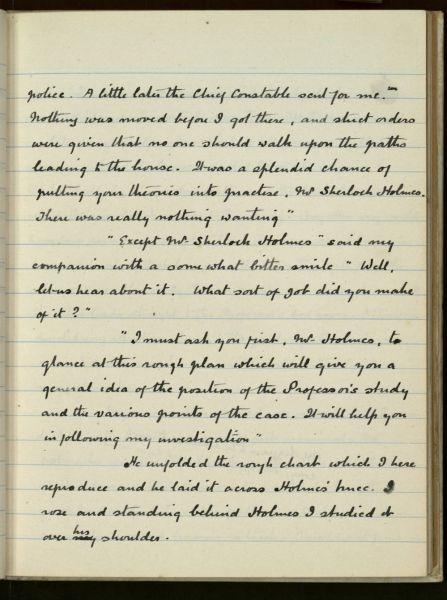 police. A little later the Chief Constable sent for me."
Nothing was moved before I got there, and strict orders
were given that no one should walk upon the paths
leading to the house. It was a splendid chance of
putting your theories into practise, Mr Sherlock Holmes.
There was really nothing wanting"
"Except Mr Sherlock Holmes" said my
companion with a somewhat bitter smile "Well,
let us hear about it. What sort of job did you make
of it?"
"I must ask you first, Mr Holmes, to
glance at this rough plan which will give you a
general idea of the position of the Professor's study
and the various points of the case. It will help you
in following my investigation"
He unfolded the rough chart which I here
reproduce and he laid it across Holmes' knee. I
rose and standing behind Holmes I studied it
over his shoulder.